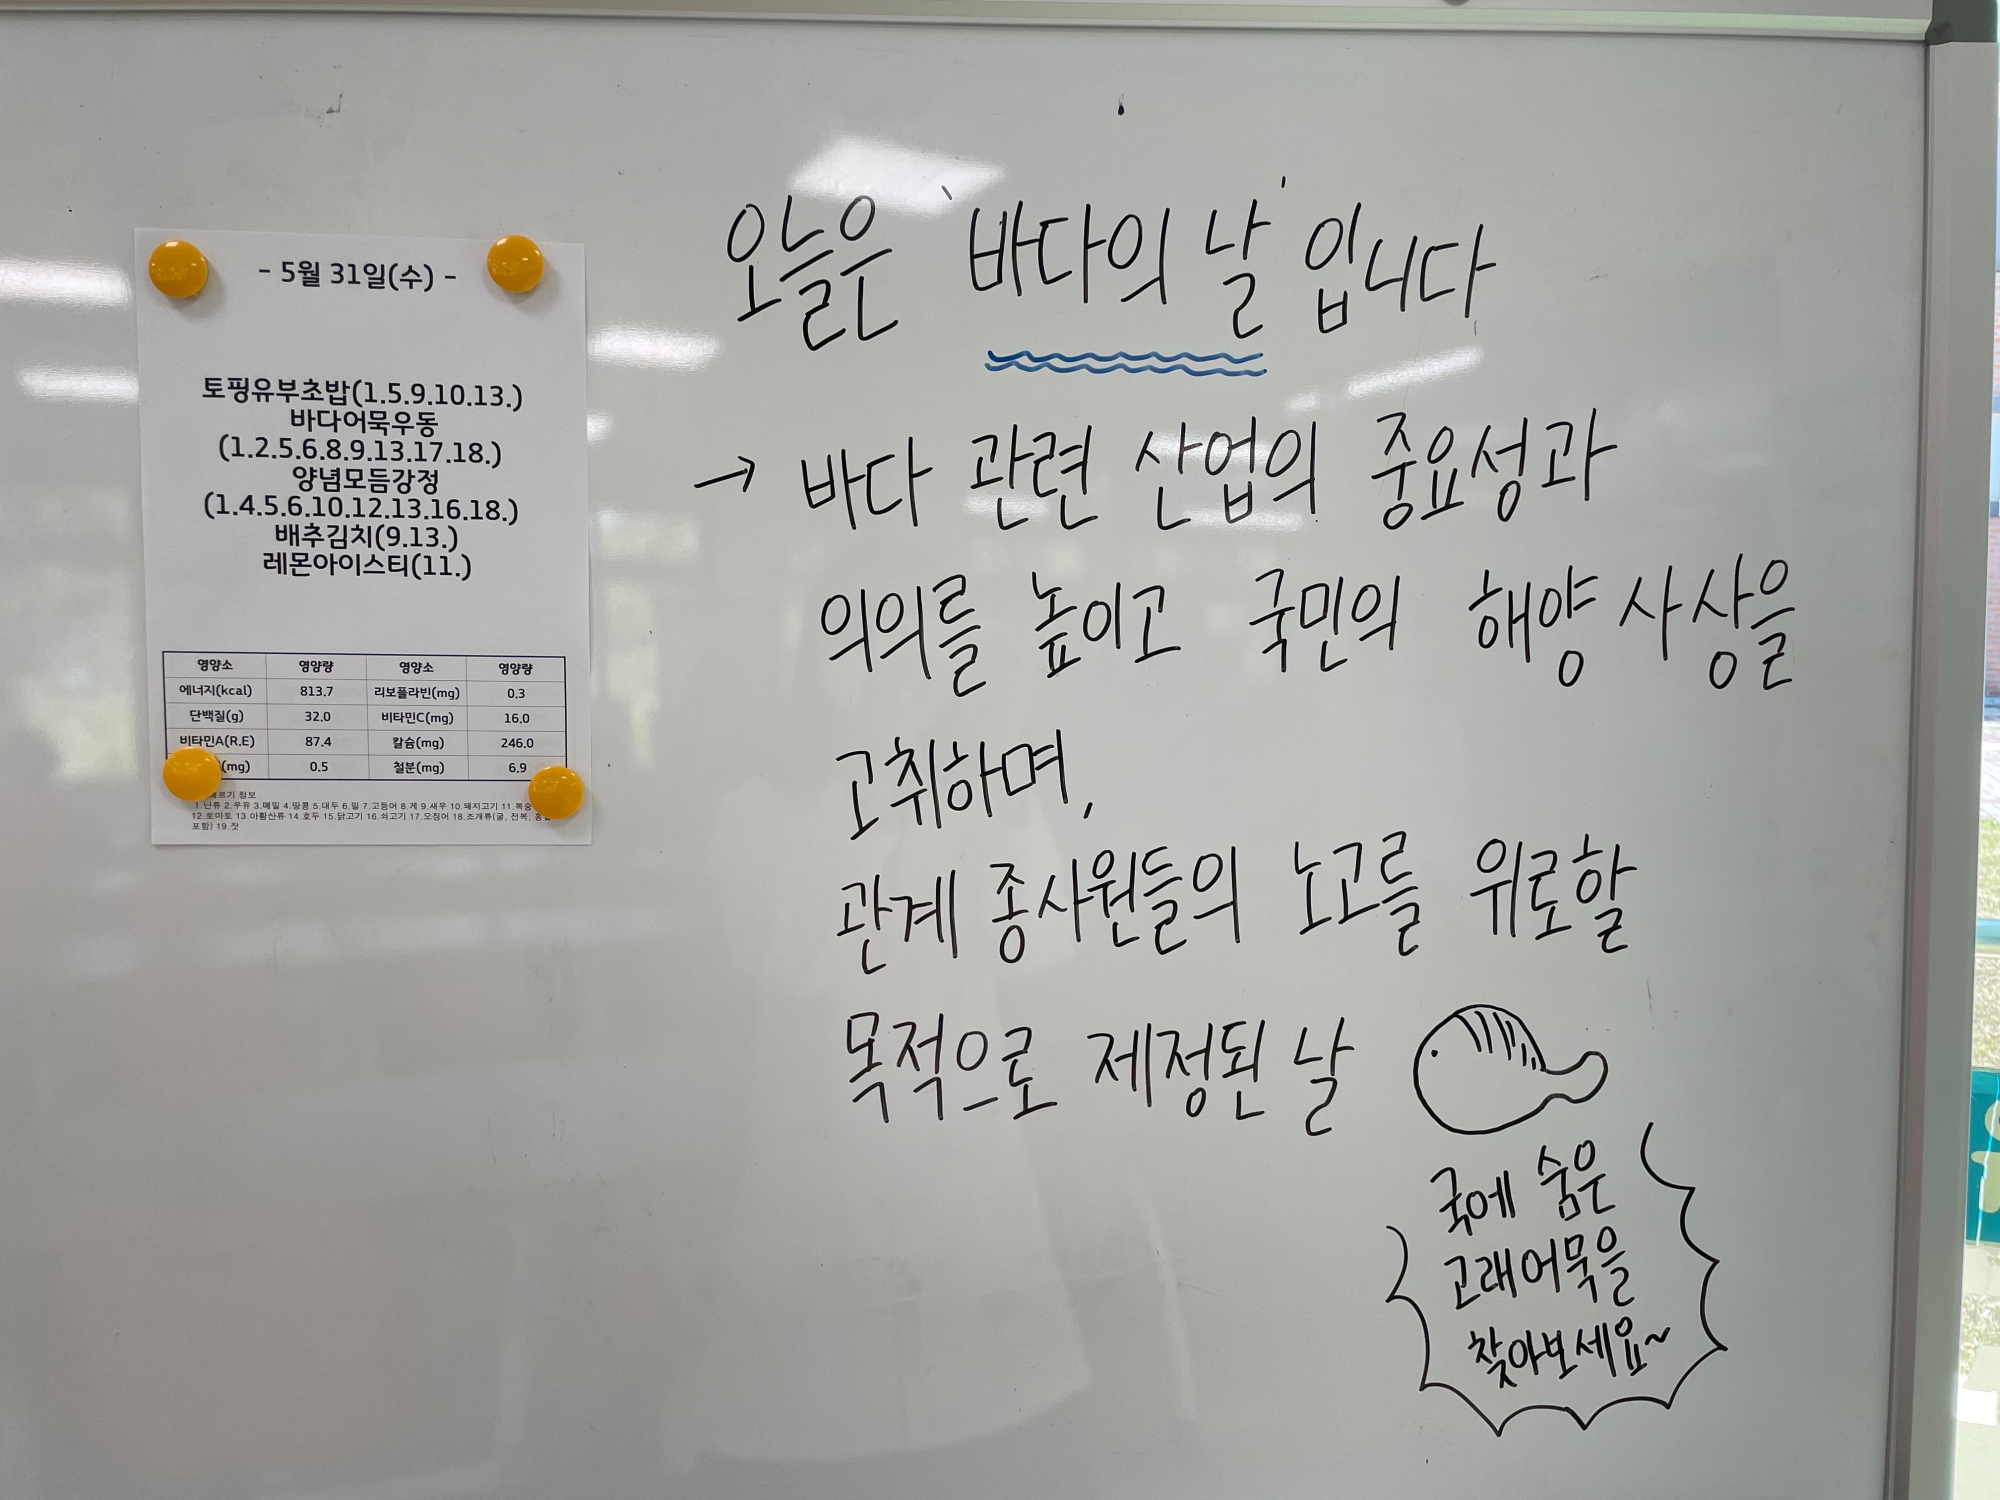 - 5월 31일(수) -
토핑유부초밥(1.5.9.10.13.)
바다어묵우동
(1.2.5.6.8.9.13.17.18.)
양념모듬강정
(1.4.5.6.10.12.13.16.18.)
배추김치(9.13.)
레몬아이스티(11.)
영양소 영양량 영양소 영양량
에너지(kcal) 813.7 리보플라빈(mg) 0.3
단백질(g) 32.0 비타민C(mg) 16.0
비타민A(R.E) 87.4 칼슘(mg) 246.0
(mg) 0.5 철분(mg) 6.9
정보
1.난류 2.우유 3.메밀 4.땅콩 5.대두 6.밀 7.고등어 8.게 9.새우 10.돼지고기 11.복숭
12.토마토 13.아황산류 14.호두 15.닭고기 16.쇠고기 17.오징어 18.조개류(굴, 전복,
포함) 19.잣
오늘은 '바다의 날' 입니다
→ 바다 관련 산업의 중요성과
의의를 높이고 국민의 해양 사상을
고취하며,
관계 종사원들의 노고를 위로할
목적으로 제정된 날
국에 숨은
고래어묵을
찾아보세요~